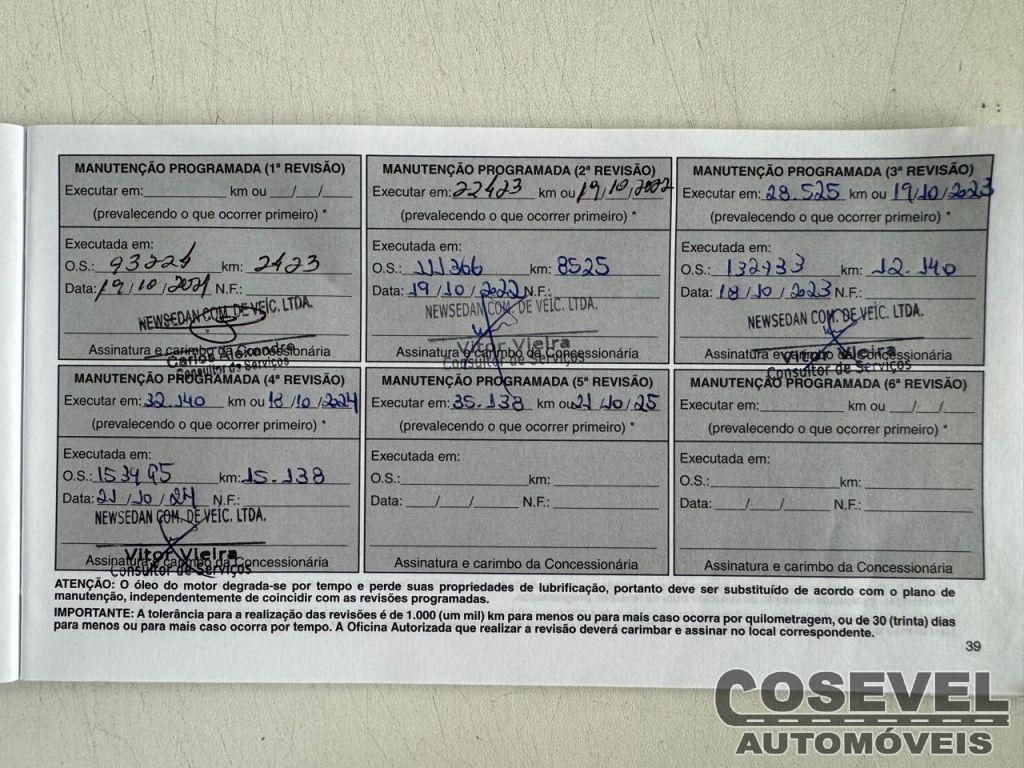 MANUTENÇÃO PROGRAMADA (1ª REVISÃO)
Executar em: km ou / /
(prevalecendo o que ocorrer primeiro) *
Executada em:
O.S.: 93221 km: 2423
Data: 19/10/2021 N.F.:
NEWSEDAN COM. DE VEÍC. LTDA.
Assinatura e carimbo da Concessionária
Consultor de Serviços
MANUTENÇÃO PROGRAMADA (2ª REVISÃO)
Executar em: 22423 km ou 19/10/2022
(prevalecendo o que ocorrer primeiro) *
Executada em:
O.S.: 111366 km: 8525
Data: 19/10/2022 N.F.:
NEWSEDAN COM. DE VEÍC. LTDA.
Vitor Vieira
Assinatura e carimbo da Concessionária
Consultor de Serviços
MANUTENÇÃO PROGRAMADA (3ª REVISÃO)
Executar em: 28.525 km ou 19/10/2023
(prevalecendo o que ocorrer primeiro) *
Executada em:
O.S.: 132733 km: 12.140
Data: 18/10/2023 N.F.:
NEWSEDAN COM. DE VEÍC. LTDA.
Vitor Vieira
Assinatura e carimbo da Concessionária
Consultor de Serviços
MANUTENÇÃO PROGRAMADA (4ª REVISÃO)
Executar em: 32.140 km ou 18/10/2024
(prevalecendo o que ocorrer primeiro) *
Executada em:
O.S.: 153495 km: 15.138
Data: 21/10/24 N.F.:
NEWSEDAN COM. DE VEÍC. LTDA.
Vitor Vieira
Assinatura e carimbo da Concessionária
Consultor de Serviços
MANUTENÇÃO PROGRAMADA (5ª REVISÃO)
Executar em: 35.138 km ou 21/10/25
(prevalecendo o que ocorrer primeiro) *
Executada em:
O.S.: km:
Data: / / N.F.:
Assinatura e carimbo da Concessionária
MANUTENÇÃO PROGRAMADA (6ª REVISÃO)
Executar em: km ou / /
(prevalecendo o que ocorrer primeiro) *
Executada em:
O.S.: km:
Data: / / N.F.:
Assinatura e carimbo da Concessionária
ATENÇÃO: O óleo do motor degrada-se por tempo e perde suas propriedades de lubrificação, portanto deve ser substituído de acordo com o plano de
manutenção, independentemente de coincidir com as revisões programadas.
IMPORTANTE: A tolerância para a realização das revisões é de 1.000 (um mil) km para menos ou para mais caso ocorra por quilometragem, ou de 30 (trinta) dias
para menos ou para mais caso ocorra por tempo. A Oficina Autorizada que realizar a revisão deverá carimbar e assinar no local correspondente.
39
COSEVEL
AUTOMÓVEIS